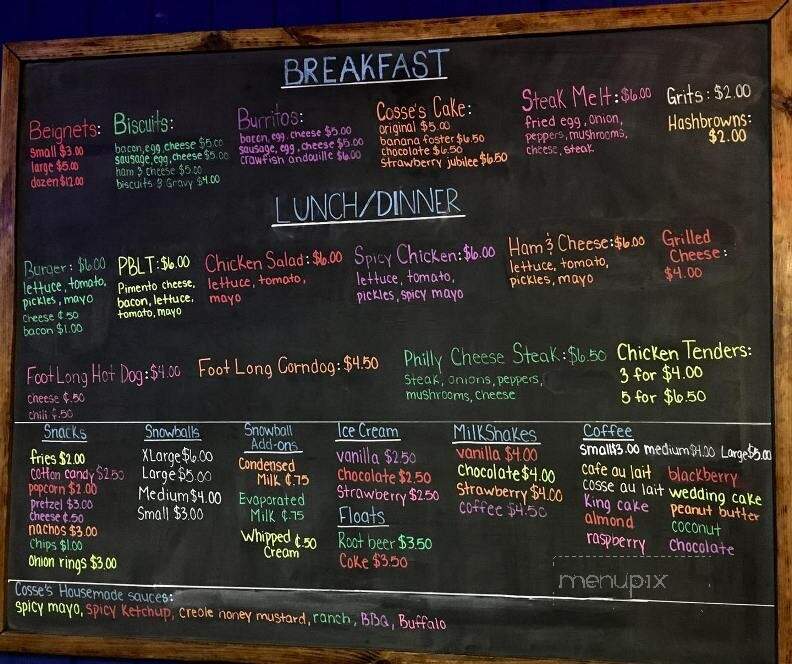 BREAKFAST
Beignets:
small $3.00
large $5.00
dozen $12.00
Biscuits:
bacon, egg, cheese $5.00
sausage, egg, cheese $5.00
ham & cheese $5.00
biscuits & Gravy $4.00
Burritos:
bacon, egg, cheese $5.00
sausage, egg, cheese $5.00
crawfish andouille $6.00
Cosse's Cake:
original $5.00
banana foster $6.50
chocolate $6.50
strawberry jubilee $6.50
Steak Melt: $6.00
fried egg, onion,
peppers, mushrooms,
cheese, steak
Grits: $2.00
Hashbrowns:
$2.00
LUNCH/DINNER
Burger: $6.00
lettuce, tomato,
pickles, mayo
cheese ¢.50
bacon $1.00
PBLT: $6.00
Pimento cheese,
bacon, lettuce,
tomato, mayo
Chicken Salad: $6.00
lettuce, tomato,
mayo
Spicy Chicken: $6.00
lettuce, tomato,
pickles, spicy mayo
Ham & Cheese: $6.00
lettuce, tomato,
pickles, mayo
Grilled
Cheese:
$4.00
Foot Long Hot Dog: $4.00
cheese ¢.50
chili ¢.50
Foot Long Corndog: $4.50
Philly Cheese Steak: $6.50
Steak, onions, peppers,
mushrooms, cheese
Chicken Tenders:
3 for $4.00
5 for $6.50
Snacks
fries $2.00
cotton candy $2.50
popcorn $2.00
pretzel $3.00
cheese ¢.50
nachos $3.00
chips $1.00
onion rings $3.00
Snowballs
XLarge $6.00
Large $5.00
Medium $4.00
Small $3.00
Snowball
Add-ons
Condensed
Milk ¢.75
Evaporated
Milk ¢.75
Whipped ¢.50
Cream
Ice Cream
vanilla $2.50
chocolate $2.50
Strawberry $2.50
Floats
Root beer $3.50
Coke $3.50
MilkShakes
vanilla $4.00
chocolate $4.00
Strawberry $4.00
coffee $4.50
Coffee
Small $3.00 medium $4.00 Large $5.00
cafe au lait
cosse au lait
King cake
almond
raspberry
blackberry
wedding cake
peanut butter
coconut
chocolate
menupix
Cosse's Housemade sauces:
spicy mayo, spicy Ketchup, creole honey mustard, ranch, BBQ, Buffalo